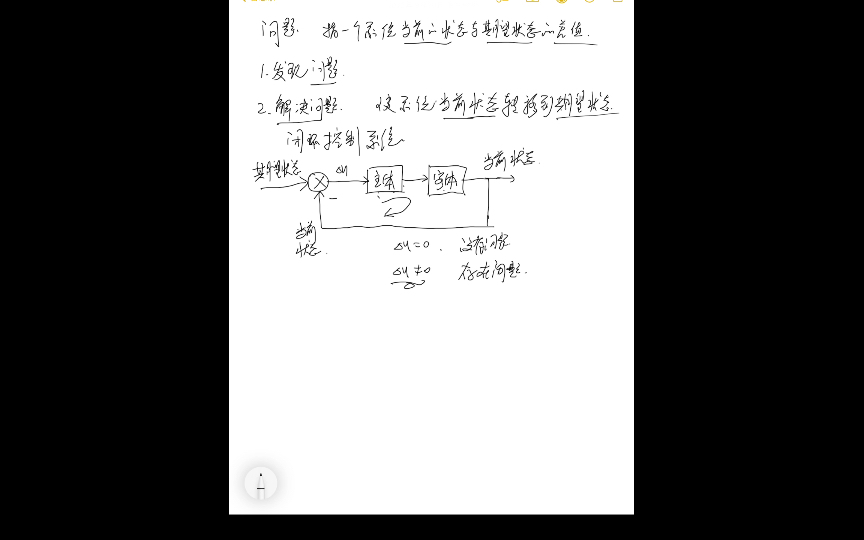 问题. 指一个系统当前的状态与期望状态的差值.
1. 发现问题.
2. 解决问题. 使系统当前状态转移到期望状态.
闭环控制系统
当前状态.
期望状态
Δu
主体
客体
−
当前
状态.
Δu=0. 没有问题
Δu≠0 存在问题.